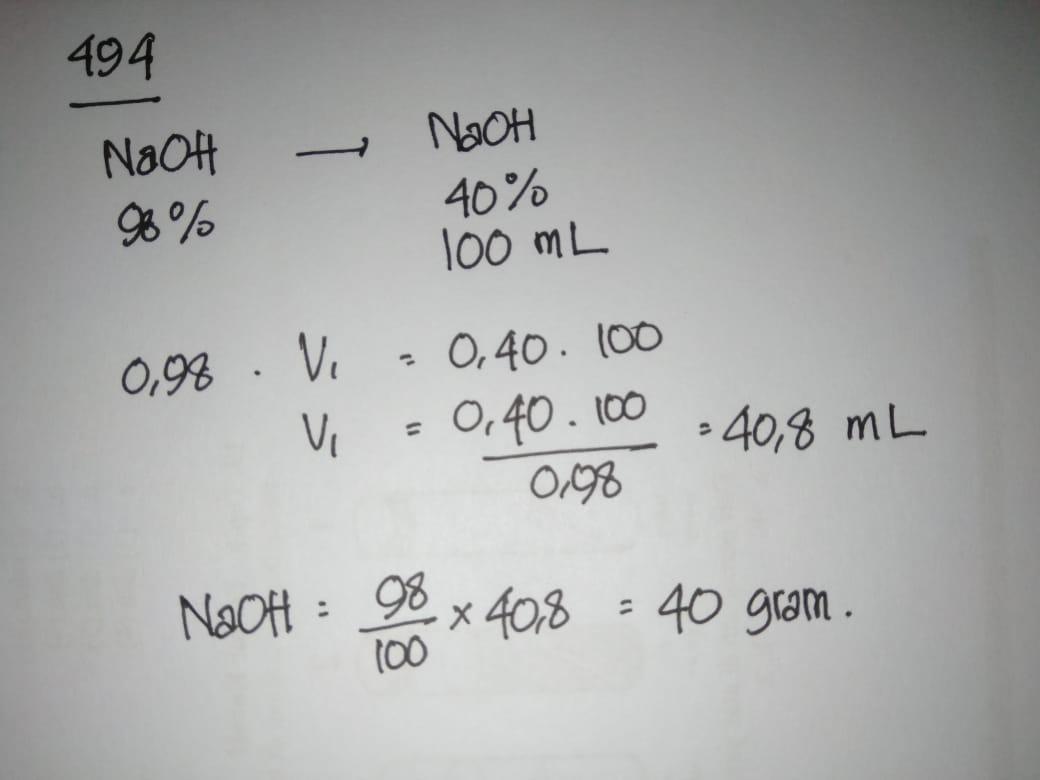 494
NaOH → NaOH
98% 40%
100 mL
0,98 . V₁ = 0,40 . 100
V₁ = 0,40 . 100 / 0,98 = 40,8 mL
NaOH = 98/100 x 40,8 = 40 gram.